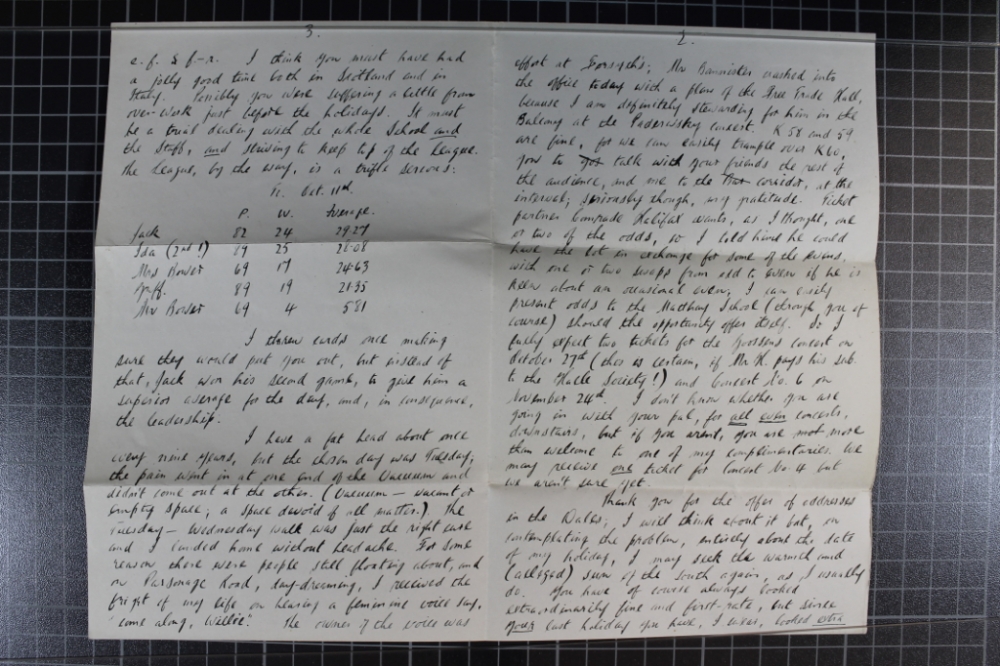 2.
effort at Forsyths; Mr Bannister rushed into
the office today with a plan of the Free Trade Hall,
because I am definitely stewarding for him in the
Balcony at the Paderewsky concert. K 58 and 59
are fine, for we can easily trample over K60,
you to talk with your friends the rest of
the audience, and me to the corridor, at the
interval; seriously though, my gratitude. Ticket
partner Comrade Halifax wants, as I thought, one
or two of the odds, so I told him he could
have the lot in exchange for some of the evens,
with one or two swops from odd to even if he is
keen about an occasional even. I can easily
present odds to the Matthay School (through you of
course) should the opportunity offer itself. So I
fully expect two tickets for the Goossens concert on
October 27th (this is certain, if Mr. H. pays his sub.
to the Hallé Society!) and Concert No. 6 on
November 24th. I don't know whether you are
going in with your pal, for all even concerts,
downstairs, but if you aren't, you are most more
than welcome to one of my complimentaries. We
may receive one ticket for Concert No. 4 but
we aren't sure yet.
Thank you for the offer of addresses
in the Dales; I will think about it but, on
contemplating the problem, entirely about the date
of my holiday, I may seek the warmth and
(alleged) sun of the south again, as I usually
do. You have of course always looked
extraordinarily fine and first-rate, but since
your last holiday you have, I mean, looked extra
3.
e. f. & f-r. I think you must have had
a jolly good time both in Scotland and in
Italy. Possibly you were suffering a little from
over-work just before the holidays. It must
be a trial dealing with the whole School and
the Staff, and striving to keep top of the League.
The League, by the way, is a trifle serious:
Fr. Oct. 11th.
P. W. Average.
Jack 82 24 29.27
Ida (2nd!) 89 25 28.08
Mrs Bowser 69 17 24.63
Griff. 89 19 21.35
Mr Bowser 69 4 5.81
I threw cards once making
sure they would put you out, but instead of
that, Jack won his second game, to give him a
superior average for the day, and, in consequence,
the leadership.
I have a fat head about once
every nine years, but the chosen day was Tuesday,
the pain went in at one end of the Vacuum and
didn't come out at the other. (Vacuum — vacant or
empty space; a space devoid of all matter.). The
Tuesday - Wednesday walk was just the right cure
and I landed home without headache. For some
reason there were people still floating about, and
on Parsonage Road, day-dreaming, I received the
fright of my life on hearing a feminine voice say,
'Come along, Willie.' The owner of the voice was